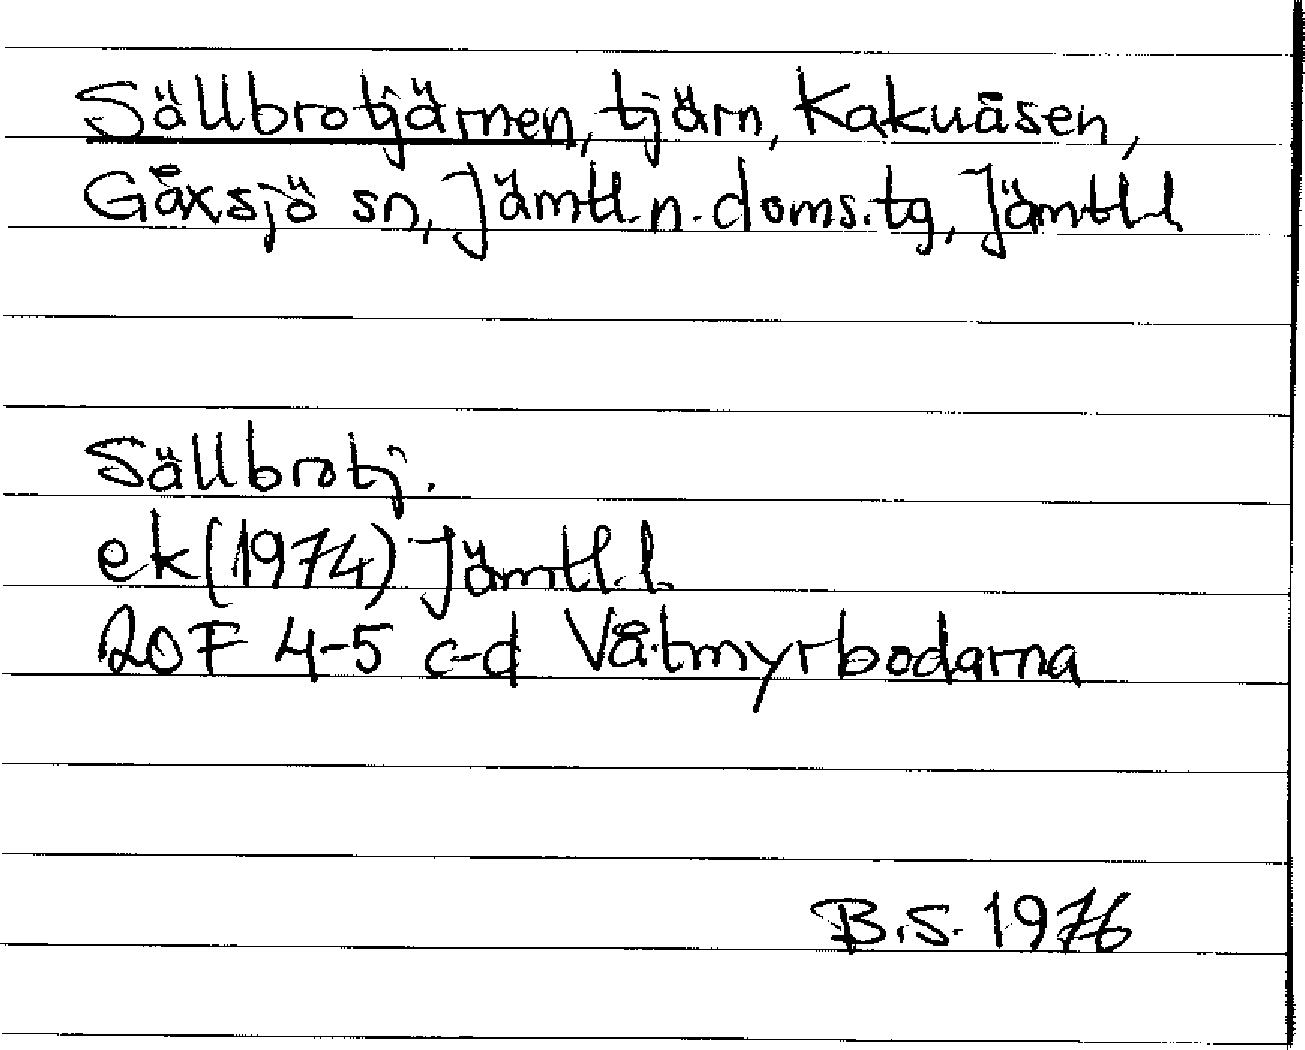 Sällbrotjärnen, tjärn, Kakuåsen,
Gåxsjö sn, Jämtl. n. doms.tg, Jämtl. l
Sällbrotj.
ek (1974) Jämtl. l.
20F 4-5 c-d Våtmyrbodarna
B.S. 1976